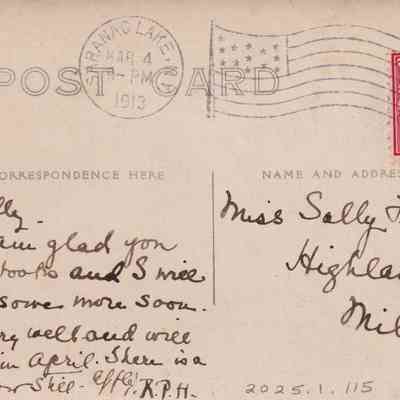 SARANAC LAKE, N.Y.
MAR 4
-PM
1913
POST CARD
CORRESPONDENCE HERE
NAME AND ADDRES
lly.
am glad you
books and I will
some more soon.
ry well and will
in April. There is a
still. R.P.H.
Miss Sally
Highla
Mil
2025.1.115